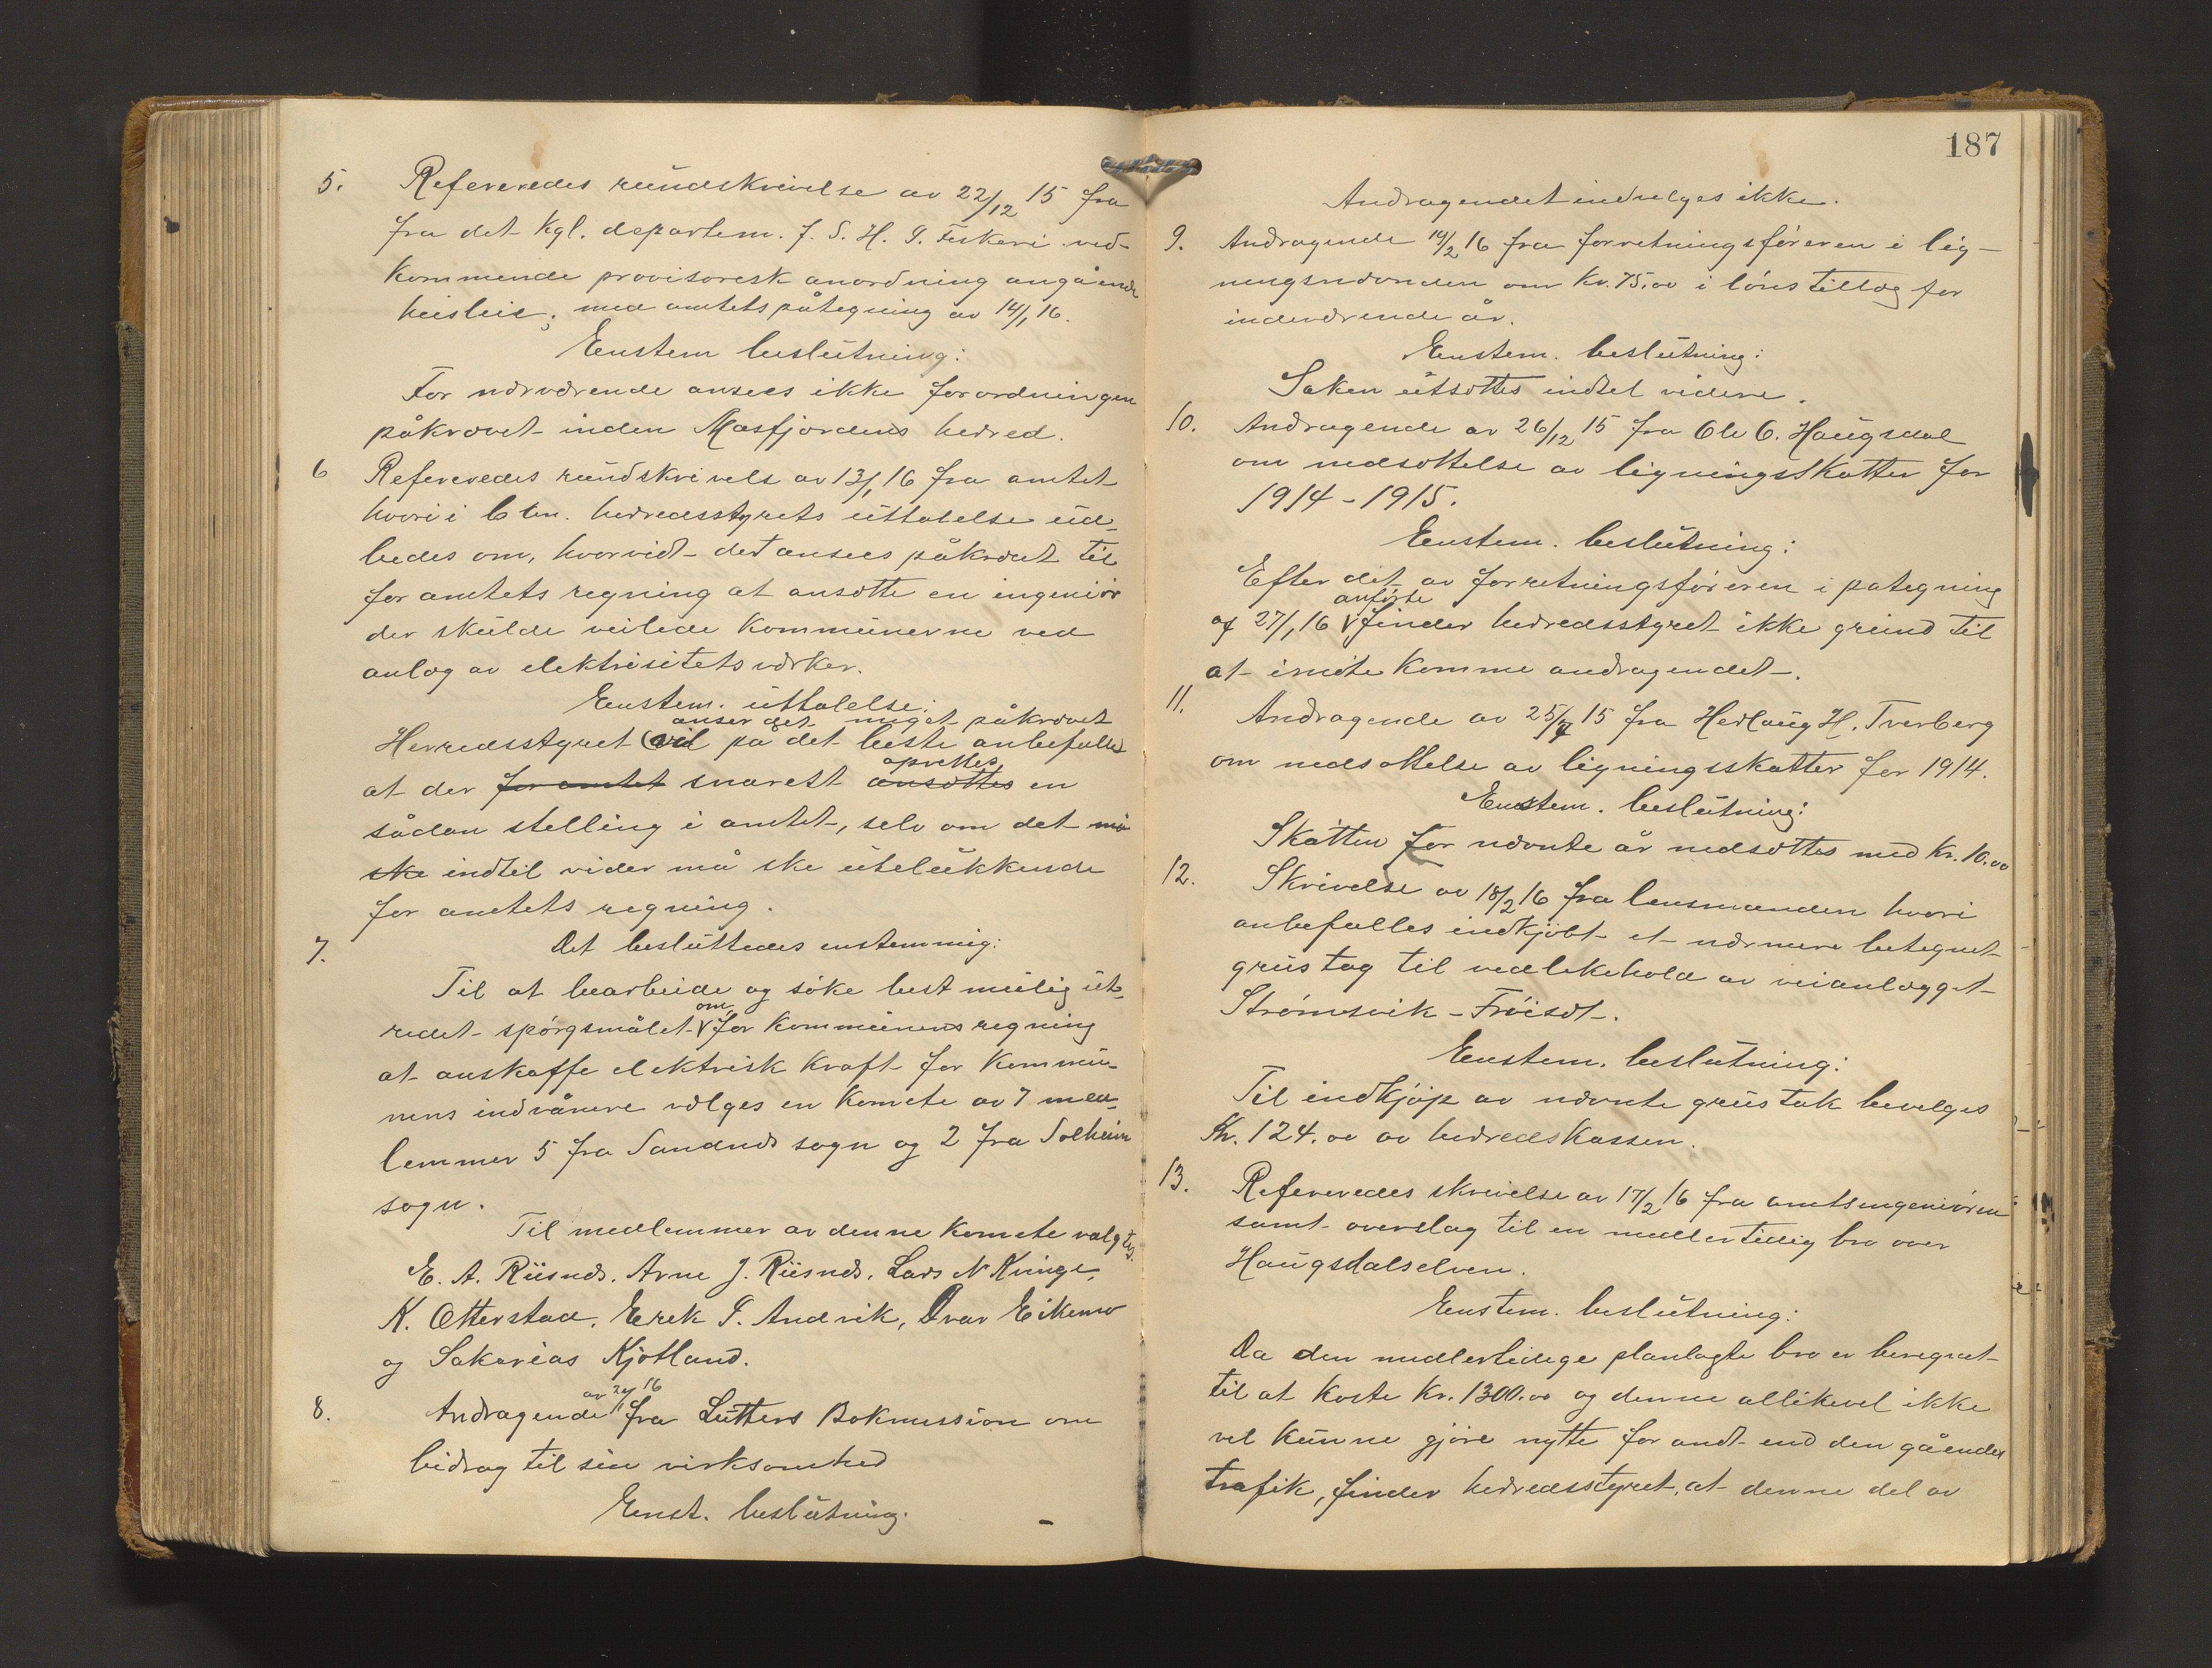 5. Refereredes rundskrivelse av 22/12 15 fra
fra det Kgl. departem. f. S. H. I. Fiskeri ved-
kommende provisoresk anordning angående
husleie; med amtets påtegning av 14/1 16.
Enstem beslutning:
For nærværende ansees ikke forordningen
påkrævet inden Masfjordens herred.
6 Refereredes rundskrivels av 13/1 16 fra amtet
hvori i bten. herredsstyrets uttalelse ud-
bedes om, hvorvidt det ansees påkrævet til
for amtets regning at ansætte en ingeniør
der skulde veilede kommunerne ved
anlæg av elektrisitetsværker.
Enstem. uttalelse:
anser det meget påkrævet
Herredsstyret (vil på det beste anbefalle
oprettes
at der for amtet snarest ansættes en
sådan stelling i amtet, selv om det må
ske indtil vider må ske utelukkende
for amtets regning.
7. Det besluttedes enstemmig:
Til at bearbeide og söke best mulig ut-
om
redet spörgsmålet for kommunens regning
at anskaffe elektrisk kraft for kommu-
nens indvånere vælges en komete av 7 med-
lemmer 5 fra Sandnes sogn og 2 fra Solheim
sogn.
Til medlemmer av denne komete valgtes
E. A. Riisnes. Arne J. Riisnes. Lars N Kvinge,
K. Otterstad. Erek P. Andvik, Ivar Eikemo
og Sakarias Kjetland.
av 24/1 16
8. Andragende fra Lutters Bokmission om
bidrag til sin virksomhed
Enst. beslutning.
187
Andragendet indvelges ikke.
9. Andragende 14/2 16 fra forretningsföreren i lig-
ningsnævnden om kr. 75,00 i lönstillæg for
indeværende år.
Enstem. beslutning:
Saken utsættes indtel videre.
10. Andragende av 26/12 15 fra Ole O. Haugsdal
om nedsættelse av ligningsskatten for
1914-1915.
Enstem. beslutning:
Efter det av forretningsföreren i pategning
anförte
af 27/1 16 finder herredsstyret ikke grund til
at imötekomme andragendet.
11. Andragende av 25/7 15 fra Herlaug H. Tverberg
om nedsættelse av ligningsskatter for 1914.
Enstem. beslutning:
Skatten for nævnte år nedsættes med kr. 10.00
12. Skrivelse av 18/2 16 fra lensmanden hvori
anbefalles indkjöbt et nærmere betegnet
grustag til vedlikehold av veianlægget
Strömsvik - Fröiset.
Enstem. beslutning:
Til indkjöp av nævnte grustak bevelges
Kr. 124.00 av herredskassen.
13. Refereredes skrivelse av 17/2 16 fra amtsingeniören
samt overslag til en medlertidig bro over
Haugsdalselven.
Enstem. beslutning:
Da den medlertidege planlagte bro er beregnet
til at koste kr. 1300.00 og denne allikevel ikke
vel kunne gjöre nytte for andt end den gående
trafik, finder herredsstyret, at denne del av